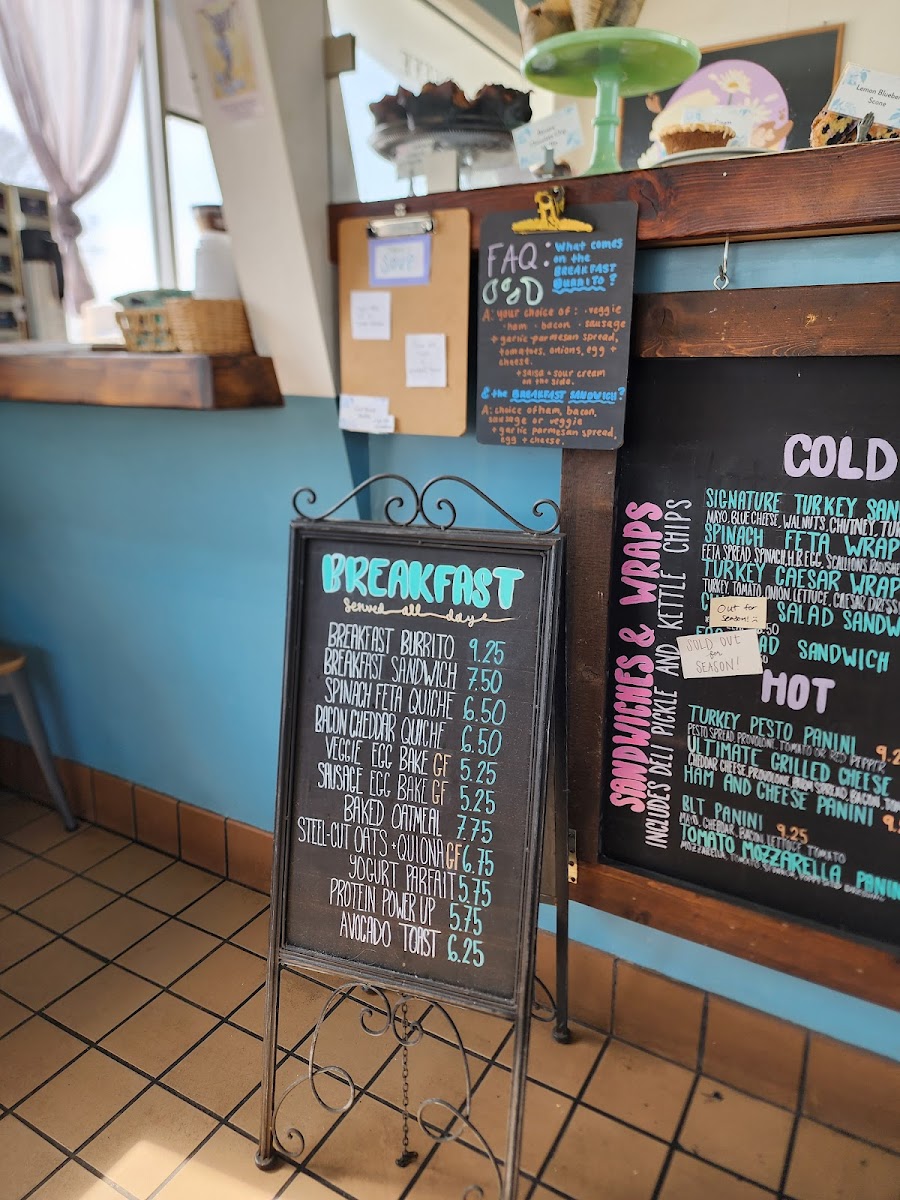 Lemon Blueberry
Scone
FAQ: What comes
on the
BREAKFAST
BURRITO?
A: your choice of: · veggie
· ham · bacon · sausage
+ garlic-parmesan spread,
tomatoes, onions, egg +
cheese.
+ salsa + sour cream
on the side.
& the BREAKFAST SANDWICH?
A: choice of ham, bacon,
sausage or veggie
+ garlic parmesan spread,
egg + cheese.
BREAKFAST
served all day
BREAKFAST BURRITO 9.25
BREAKFAST SANDWICH 7.50
SPINACH FETA QUICHE 6.50
BACON CHEDDAR QUICHE 6.50
VEGGIE EGG BAKE GF 5.25
SAUSAGE EGG BAKE GF 5.25
BAKED OATMEAL 7.75
STEEL-CUT OATS + QUIONA GF 6.75
YOGURT PARFAIT 5.75
PROTEIN POWER UP 5.75
AVOCADO TOAST 6.25
SANDWICHES & WRAPS
INCLUDES DELI PICKLE AND KETTLE CHIPS
COLD
SIGNATURE TURKEY SAN
MAYO, BLUE CHEESE, WALNUTS, CHUTNEY, TUR
SPINACH FETA WRAP
FETA SPREAD, SPINACH, H.B. EGG, SCALLIONS, RADISHE
TURKEY CAESAR WRAP
TURKEY, TOMATO, ONION, LETTUCE, CAESAR DRESS
SALAD SANDW
Out for
Season!
SANDWICH
SOLD OUT
for
SEASON!
HOT
TURKEY PESTO PANINI 9.2
PESTO SPREAD, PROVOLONE, TOMATO OR RED PEPPER
ULTIMATE GRILLED CHEESE
CHEDDAR CHEESE, PROVOLONE, BACON SPREAD, BACON, TOM
HAM AND CHEESE PANINI 9
BLT PANINI 9.25
MAYO, CHEDDAR, BACON, LETTUCE, TOMATO
TOMATO MOZZARELLA PANIN
MOZZARELLA, TOMATO, SPINACH,